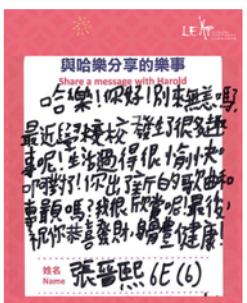 LEAP
與哈樂分享的樂事
Share a message with Harold
哈樂!你好!別來無恙嗎?
最近學校發生了很多趣
事呢!生活過得很愉快。
啊對了!你出了新的歌曲和
專題嗎?我很欣賞呢!最後,
祝你恭喜發財,身體健康!
姓名
Name
張晉熙 6E(6)